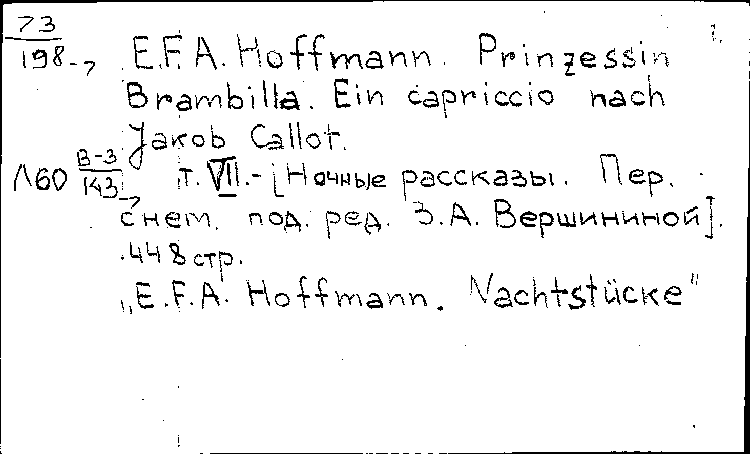 73
198 → E.F.A. Hoffmann. Prinzessin
Brambilla. Ein capriccio nach
Jakob Callot.
Л60 В-3
143 → т. VII. - [Ночные рассказы. Пер.
с нем. под. ред. З.А. Вершининой].
448 стр.
„E.F.A. Hoffmann. Nachtstücke"